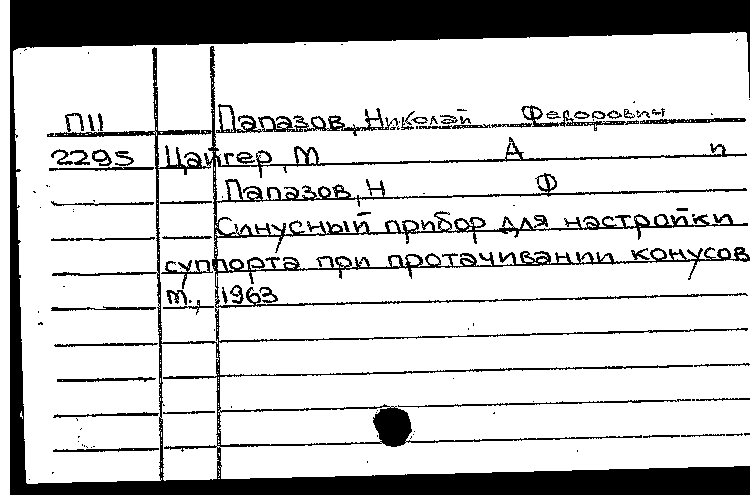 П11 Папазов, Николай Федорович
2295 Цайгер, М А п
Папазов, Н Ф
Синусный прибор для настройки
суппорта при протачивании конусов
т., 1963